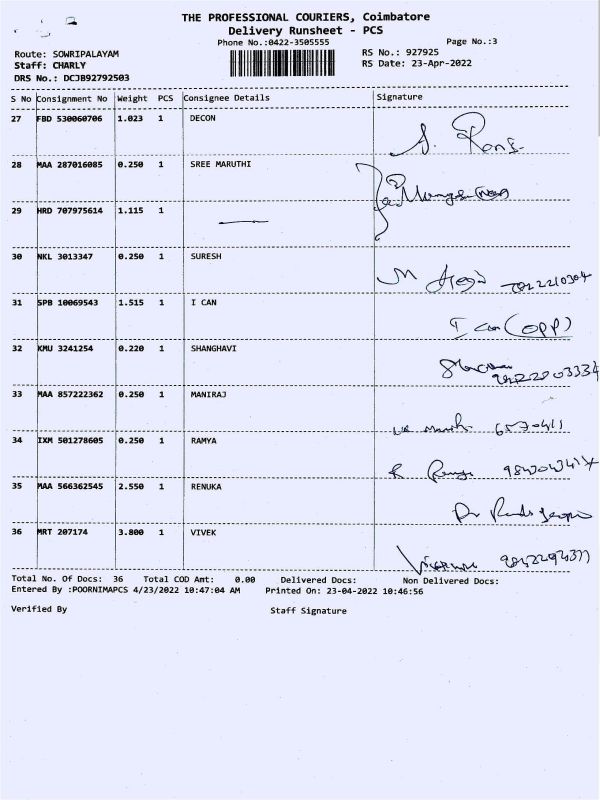 THE PROFESSIONAL COURIERS, Coimbatore
Delivery Runsheet - PCS
Phone No.:0422-3505555
Page No.:3
Route: SOWRIPALAYAM
RS No.: 927925
Staff: CHARLY
RS Date: 23-Apr-2022
DRS No.: DCJB92792503
S No Consignment No Weight PCS Consignee Details Signature
27 FBD 530060706 1.023 1 DECON
28 MAA 287016085 0.250 1 SREE MARUTHI
29 HRD 707975614 1.115 1
30 NKL 3013347 0.250 1 SURESH
31 SPB 10069543 1.515 1 I CAN
I can (OPP)
32 KMU 3241254 0.220 1 SHANGHAVI
33 MAA 857222362 0.250 1 MANIRAJ
34 IXM 501278605 0.250 1 RAMYA
35 MAA 566362545 2.550 1 RENUKA
36 MRT 207174 3.800 1 VIVEK
Total No. Of Docs: 36 Total COD Amt: 0.00 Delivered Docs: Non Delivered Docs:
Entered By :POORNIMAPCS 4/23/2022 10:47:04 AM Printed On: 23-04-2022 10:46:56
Verified By Staff Signature